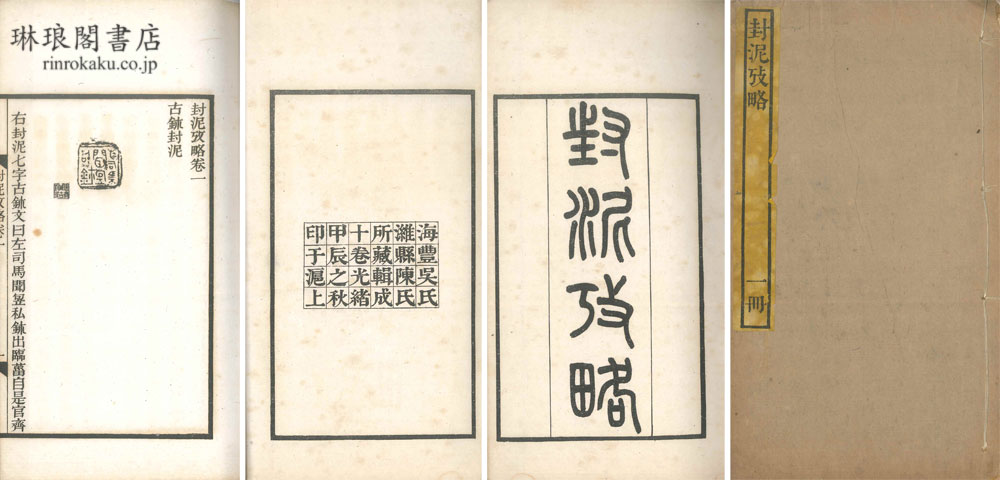 琳琅閣書店
rinrokaku.co.jp
封泥攷略
一冊
封泥攷略
海豐吳氏
濰縣陳氏
所藏輯成
十卷光緒
甲辰之秋
印于滬上
封泥攷略卷一
古鉨封泥
右封泥七字古鉨文曰左司馬聞竘私鉨出臨菑自是官齊
封泥攷略卷一
一